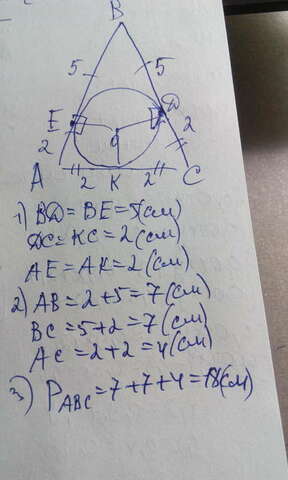 B
5 5
E D
2 O 2
A 2 K 2 C
1) BD = BE = 5(см)
DC = KC = 2 (см)
AE = AK = 2 (см)
2) AB = 2 + 5 = 7 (см)
BC = 5 + 2 = 7 (см)
AC = 2 + 2 = 4 (см)
3) P ABC = 7 + 7 + 4 = 18(см)